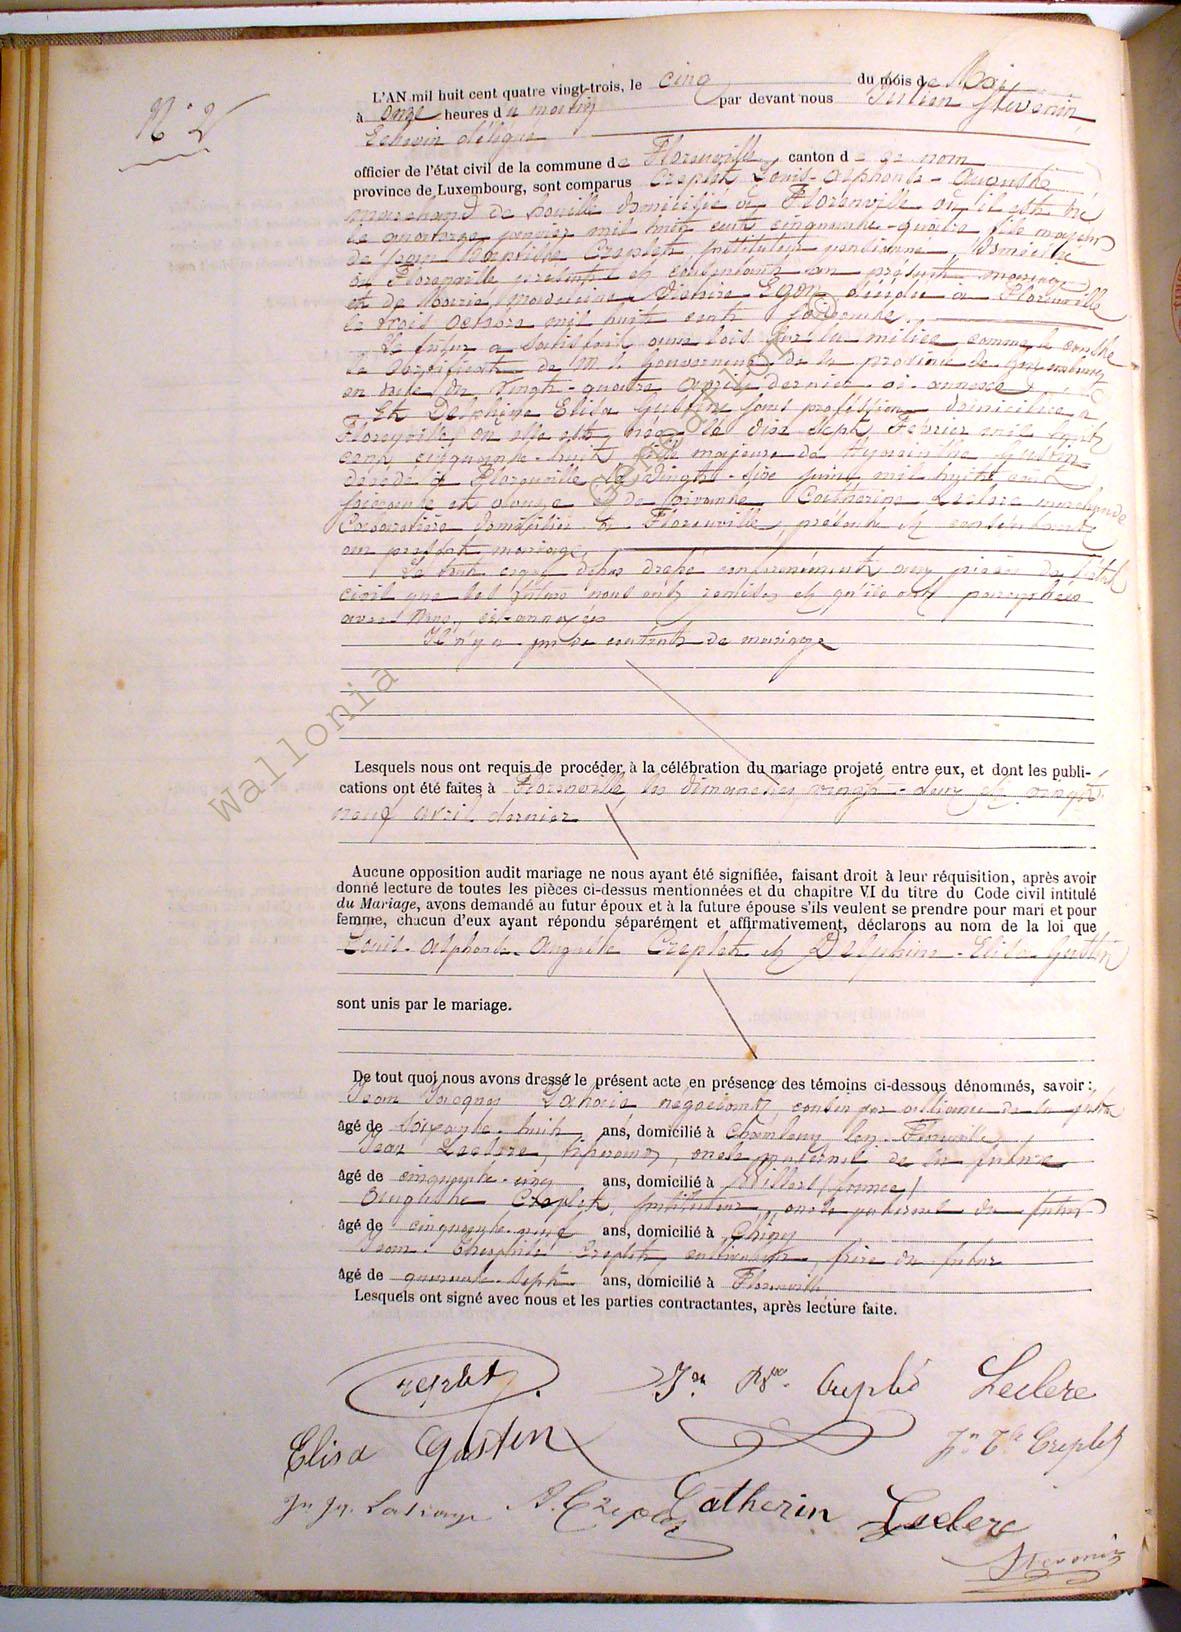 N° 2
L'AN mil huit cent quatre vingt-trois, le cinq du mois de Mai
à onze heures du matin par devant nous Stévenin,
Echevin délégué
officier de l'état civil de la commune de Florenville, canton de ce nom
province de Luxembourg, sont comparus Creplet Louis-Alphonse-Auguste
marchand de houille domicilié à Florenville où il est né
le quatorze janvier mil huit cent cinquante-quatre, fils majeur
de Jean Baptiste Creplet, instituteur pensionné, domicilié
à Florenville, présent et consentant au présent mariage
et de Marie Madeleine Egon décédée à Florenville
le trois octobre mil huit cent soixante.
Le futur a satisfait aux lois sur la milice comme le constate
le certificat de Mr le Gouverneur de la province de Luxembourg
en date du vingt-quatre avril dernier ci-annexé
Et Delphine Elisa Gustin sans profession domiciliée à
Florenville, où elle est née le dix sept Février mil huit
cent cinquante-huit, fille majeure de Gustin
décédé à Florenville le vingt-six juin mil huit cent
soixante et douze et de Catherine Leclere marchande
domiciliée à Florenville, présente et consentante
au présent mariage.
Le tout conformément aux pièces de l'état
civil que les futurs nous ont remises et qu'ils ont paraphées
avec Nous, ci-annexées
Il n'y a pas de contrat de mariage
Lesquels nous ont requis de procéder à la célébration du mariage projeté entre eux, et dont les publi-
cations ont été faites à Florenville, les dimanches vingt-deux et vingt-
neuf avril dernier
Aucune opposition audit mariage ne nous ayant été signifiée, faisant droit à leur réquisition, après avoir
donné lecture de toutes les pièces ci-dessus mentionnées et du chapitre VI du titre du Code civil intitulé
du Mariage, avons demandé au futur époux et à la future épouse s'ils veulent se prendre pour mari et pour
femme, chacun d'eux ayant répondu séparément et affirmativement, déclarons au nom de la loi que
Louis-Alphonse-Auguste Creplet et Delphine-Elisa Gustin
sont unis par le mariage.
De tout quoi nous avons dressé le présent acte en présence des témoins ci-dessous dénommés, savoir :
Jean Jacques négociant, cousin par alliance de la future
âgé de soixante-huit ans, domicilié à
Jean Leclere, oncle maternel de la future
âgé de cinquante-cinq ans, domicilié à (france)
Auguste Creplet, instituteur, oncle paternel du futur
âgé de cinquante-neuf ans, domicilié à Chiny
Jean Théophile Creplet, cultivateur, frère du futur
âgé de quarante-sept ans, domicilié à Florenville
Lesquels ont signé avec nous et les parties contractantes, après lecture faite.
Creplet. Jn Bte Creplet Leclere
Elisa Gustin Jn Tle Creplet
Jn Jq A. Creplet Catherin Leclere
Stevenin
Wallonia